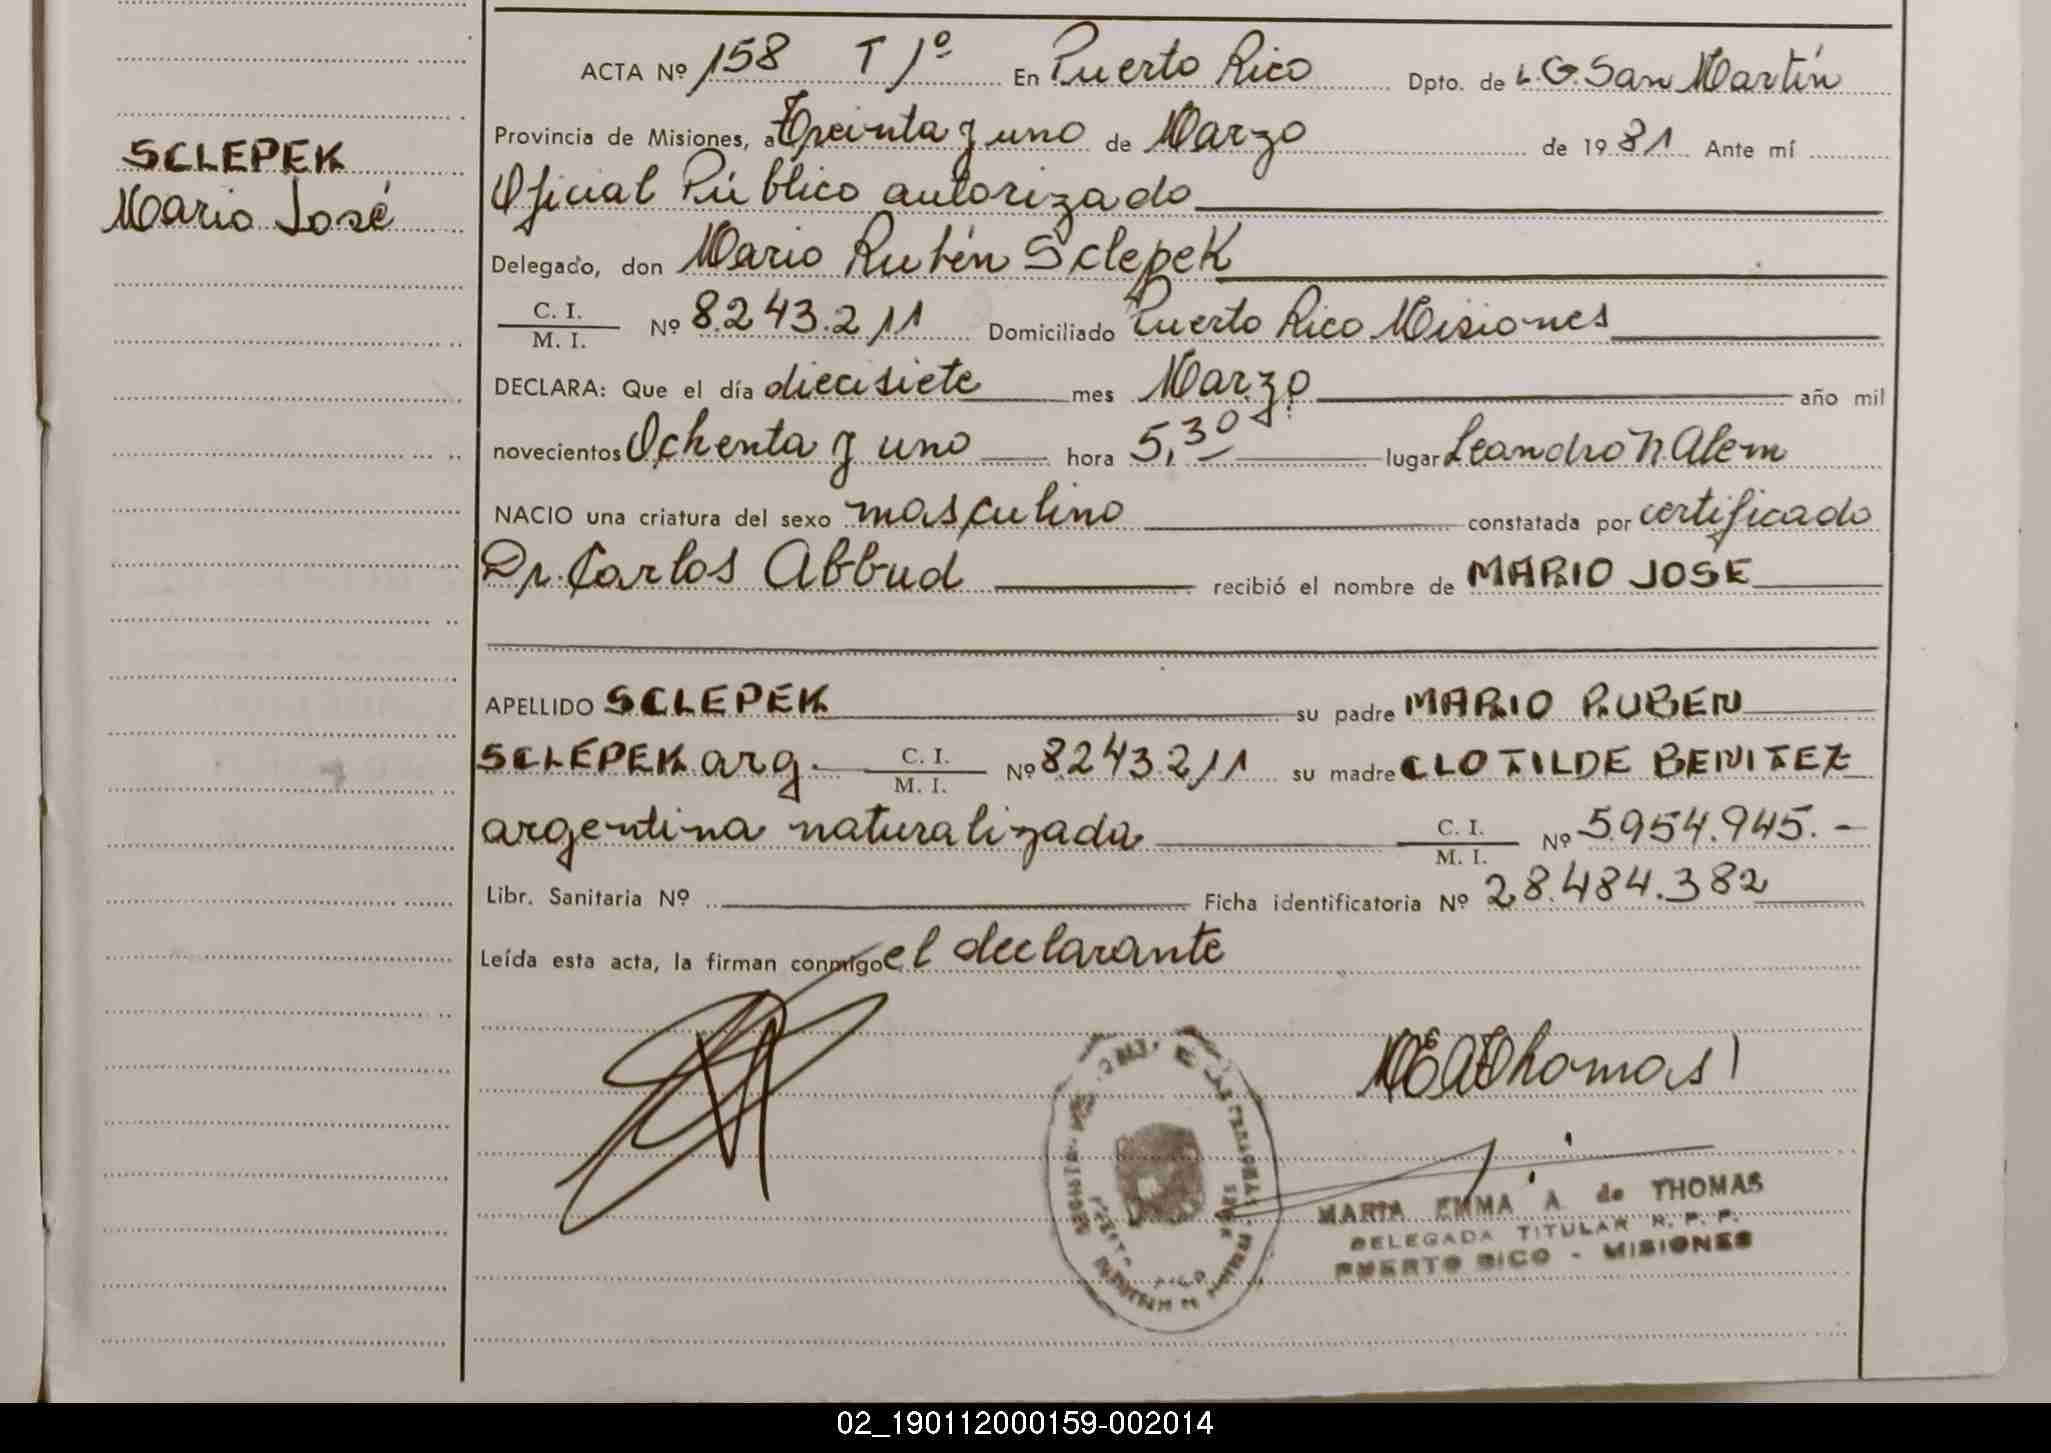 ACTA Nº 158 T 1º En Puerto Rico Dpto. de L.G. San Martín
Provincia de Misiones, a Treinta y uno de Marzo de 1981 Ante mí
Oficial Público autorizado
SCLEPEK
Mario José
Delegado, don Mario Rubén Sclepek
C. I.
M. I.
Nº 8.243.211 Domiciliado Puerto Rico Misiones
DECLARA: Que el día diecisiete mes Marzo año mil
novecientos Ochenta y uno hora 5,30 lugar Leandro N Alem
NACIO una criatura del sexo masculino constatada por certificado
Dr. Carlos Abbud recibió el nombre de MARIO JOSE
APELLIDO SCLEPEK su padre MARIO RUBEN
SCLEPEK arg. C. I. M. I. Nº 8243.211 su madre CLOTILDE BENITEZ
argentina naturalizada C. I. M. I. Nº 5.954.945.-
Libr. Sanitaria Nº Ficha identificatoria Nº 28.484.382
Leída esta acta, la firman conmigo el declarante
MEAdeThomas
MARIA EMMA A de THOMAS
DELEGADA TITULAR R. P. P.
PUERTO RICO - MISIONES
02_190112000159-002014